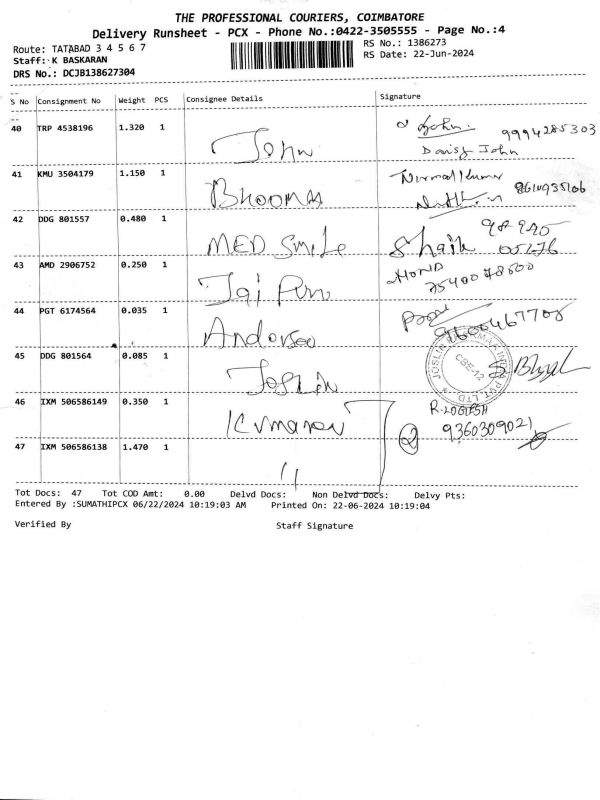 THE PROFESSIONAL COURIERS, COIMBATORE
Delivery Runsheet - PCX - Phone No.:0422-3505555 - Page No.:4
Route: TATABAD 3 4 5 6 7
RS No.: 1386273
Staff: K BASKARAN
RS Date: 22-Jun-2024
DRS No.: DCJB138627304
S No Consignment No Weight PCS Consignee Details Signature
40 TRP 4538196 1.320 1 John John. 9994285303
Daisy John
41 KMU 3504179 1.150 1 Bhooma Nirmal Kumar
42 DDG 801557 0.480 1 MED Smile Shaik
43 AMD 2906752 0.250 1 Jai
44 PGT 6174564 0.035 1 9600467708
45 DDG 801564 0.085 1 Joslin
JOSLIN PVT LTD CBE-12
46 IXM 506586149 0.350 1 Kumaran R. LOGESH
9360309021
47 IXM 506586138 1.470 1 " 2
Tot Docs: 47 Tot COD Amt: 0.00 Delvd Docs: Non Delvd Docs: Delvy Pts:
Entered By :SUMATHIPCX 06/22/2024 10:19:03 AM Printed On: 22-06-2024 10:19:04
Verified By Staff Signature